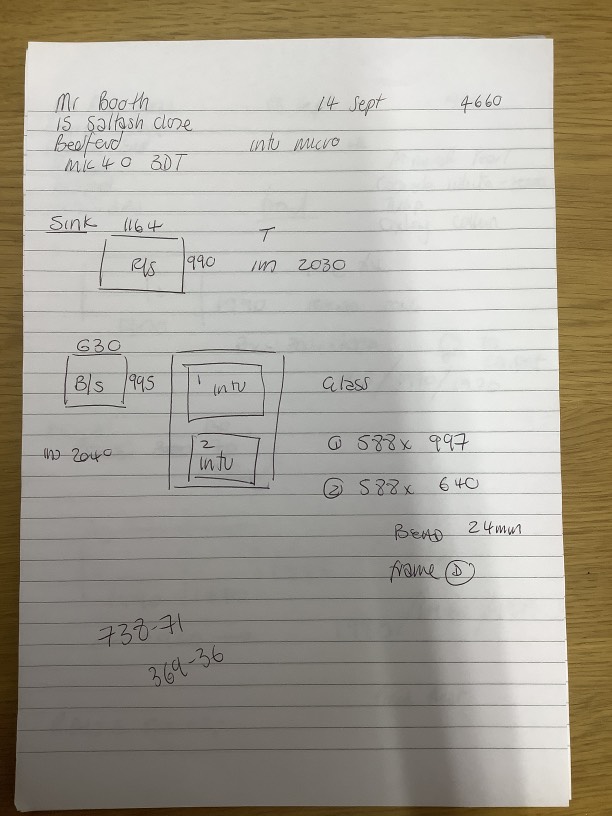 Mr Booth 14 Sept 4660
15 Saltash close
Bedford intu micro
MK40 3DT
Sink 1164
R/s 990 T
IM 2030
630
B/s 995 1 intu Glass
2 intu ① 588 x 997
IW 2040 ② 588 x 640
BEAD 24mm
frame Ⓓ
738-71
369-36